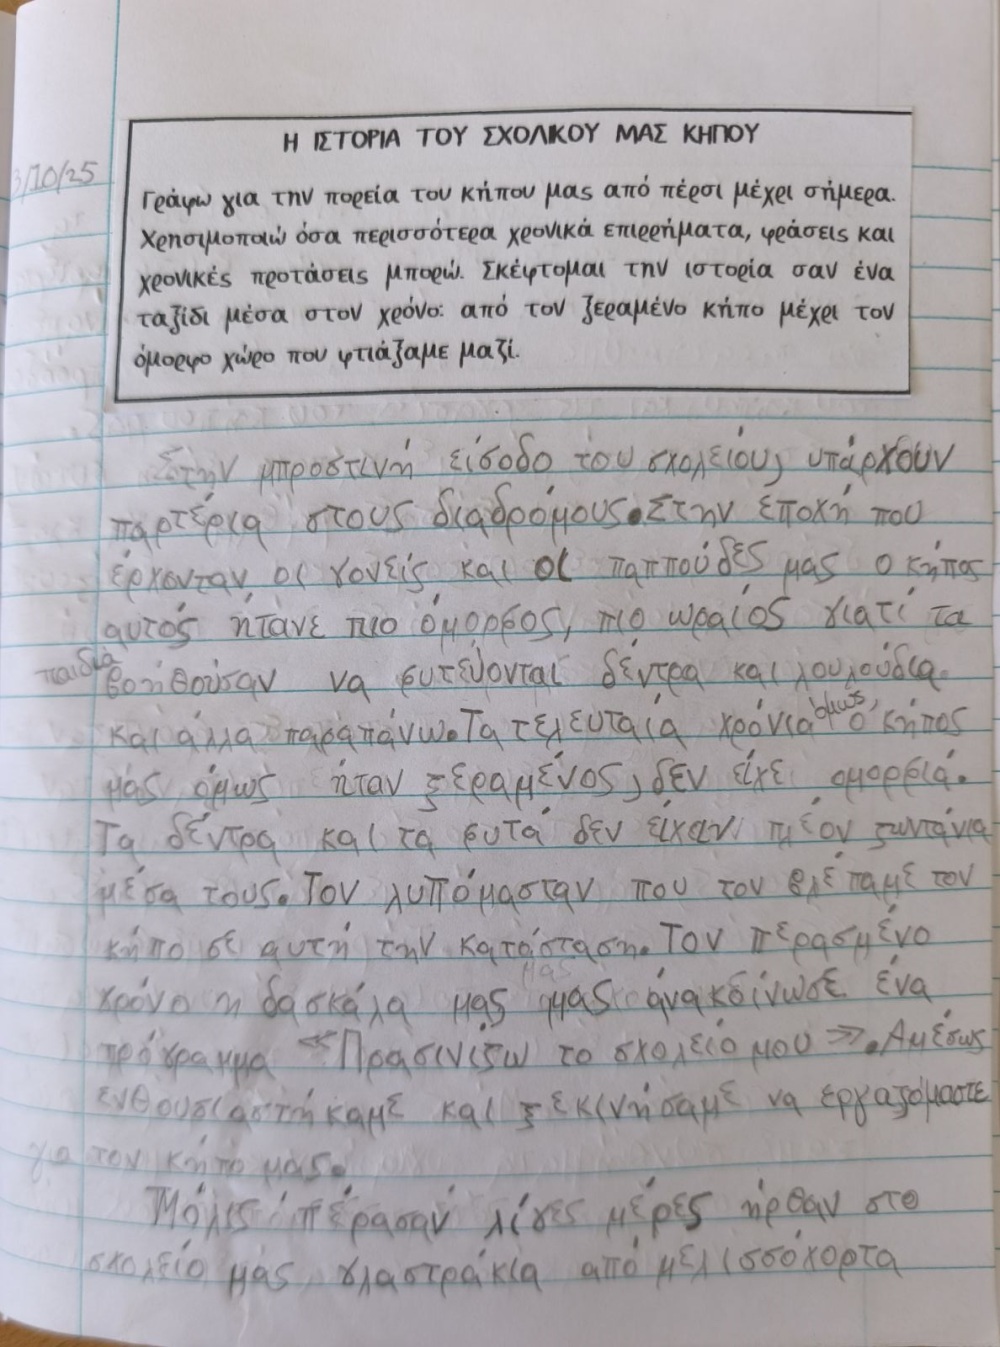 Η ΙΣΤΟΡΙΑ ΤΟΥ ΣΧΟΛΙΚΟΥ ΜΑΣ ΚΗΠΟΥ
3/10/25
Γράφω για την πορεία του κήπου μας από πέρσι μέχρι σήμερα.
Χρησιμοποιώ όσα περισσότερα χρονικά επιρρήματα, φράσεις και
χρονικές προτάσεις μπορώ. Σκέφτομαι την ιστορία σαν ένα
ταξίδι μέσα στον χρόνο: από τον ξεραμένο κήπο μέχρι τον
όμορφο χώρο που φτιάξαμε μαζί.
Στην μπροστινή είσοδο του σχολείου, υπάρχουν
παρτέρια στους διαδρόμους. Στην εποχή που
έρχονταν οι γονείς και οι παππούδες μας ο κήπος
αυτός ήτανε πιο όμορφος, πιο ωραίος γιατί τα
παιδιά βοηθούσαν να φυτεύονται δέντρα και λουλούδια
και άλλα παραπάνω. Τα τελευταία χρόνια όμως, ο κήπος
μας όμως ήταν ξεραμένος, δεν είχε ομορφιά.
Τα δέντρα και τα φυτά δεν είχαν πλέον ζωντάνια
μέσα τους. Τον λυπόμασταν που τον βλέπαμε τον
κήπο σε αυτή την κατάσταση. Τον περασμένο
μας
χρόνο η δασκάλα μας μας ανακοίνωσε ένα
πρόγραμμα «Πρασινίζω το σχολείο μου». Αμέσως
ενθουσιαστήκαμε και ξεκινήσαμε να εργαζόμαστε
για τον κήπο μας.
Μόλις πέρασαν λίγες μέρες ήρθαν στο
σχολείο μας γλαστράκια από μελισσόχορτα